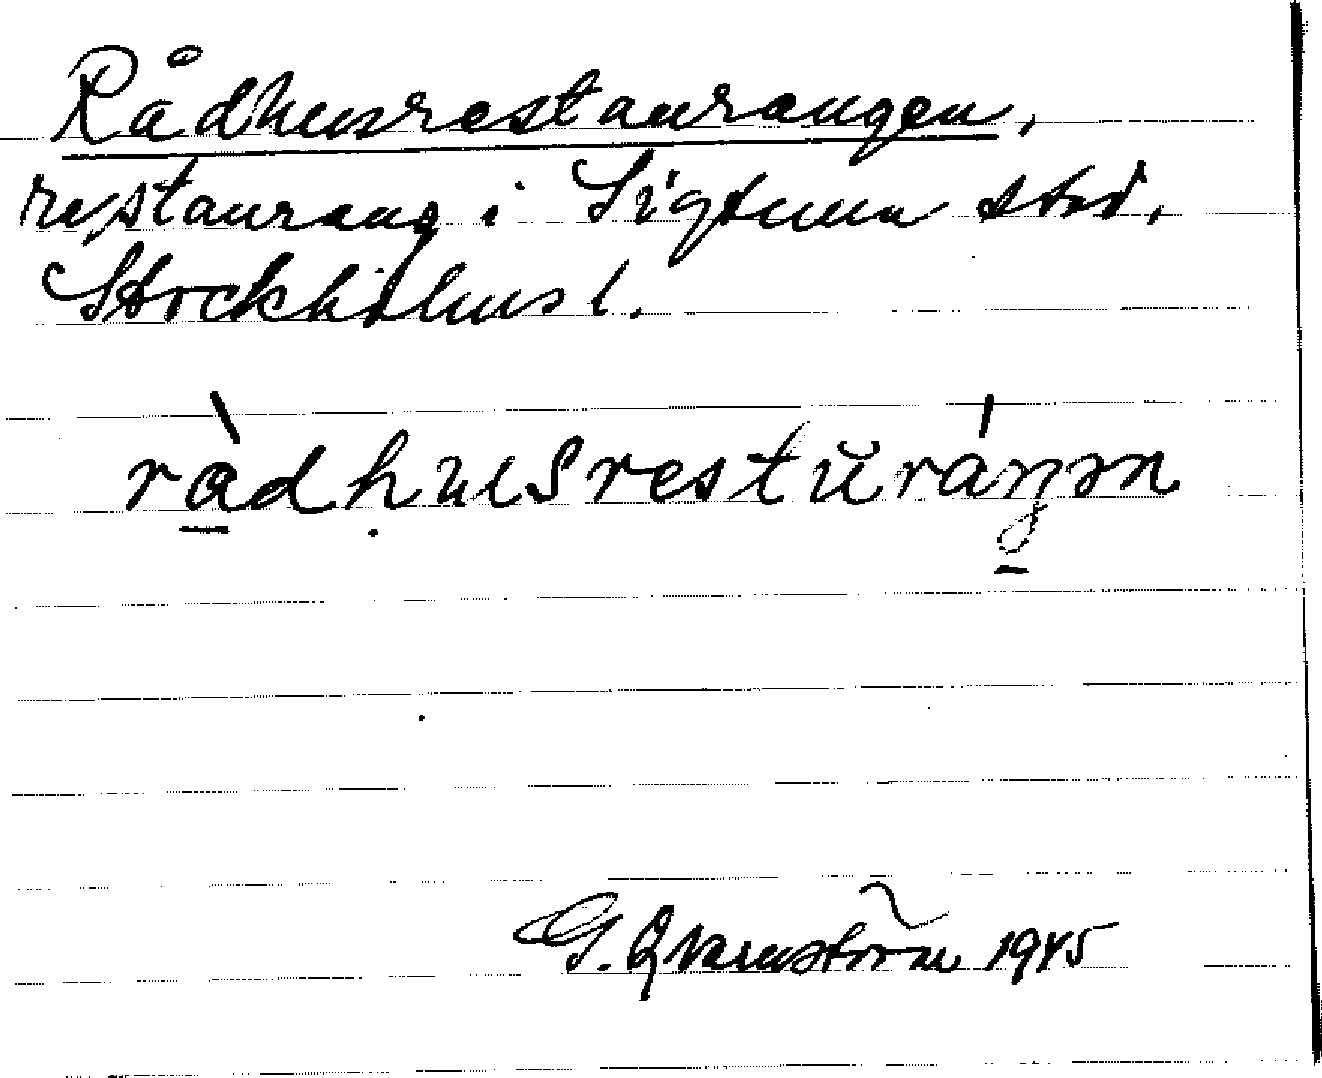 Rådhusrestaurangen,
restaurang i Sigtuna stad,
Stockholms l.
ràdhusrestŭráŋən
G. Qvarnström 1945